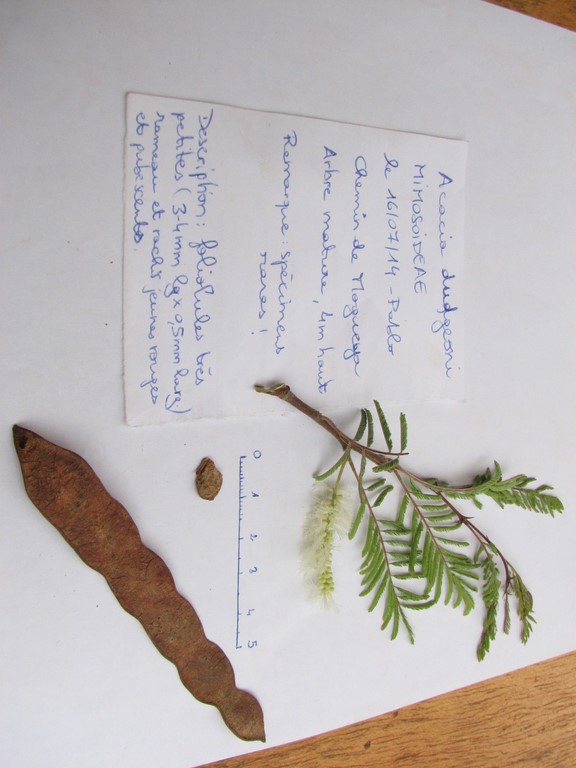 Acacia dudgeoni
MIMOSOIDEAE
le 16/07/14 - Pablo
Chemin de
Arbre mature, 4m haut
Remarque : spécimens
rares !
Description : foliolules très
petites (3-4mm lg x 0,5mm large)
rameau et rachis jeunes rouges
et pubescents.
0 1 2 3 4 5